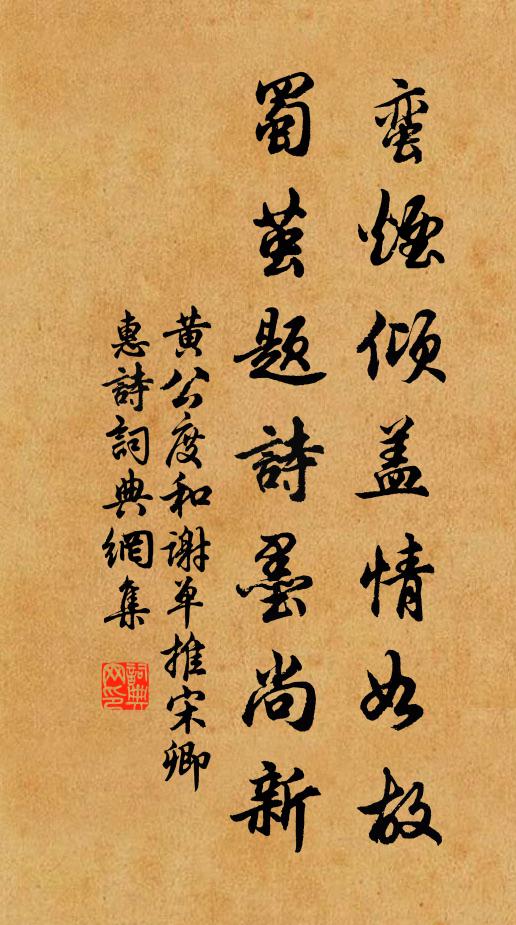 蛮煙傾盖情如故
蜀茧题詩墨尚新
黄公度和谢单推宋卿
惠詩詞典網集
詞典网印